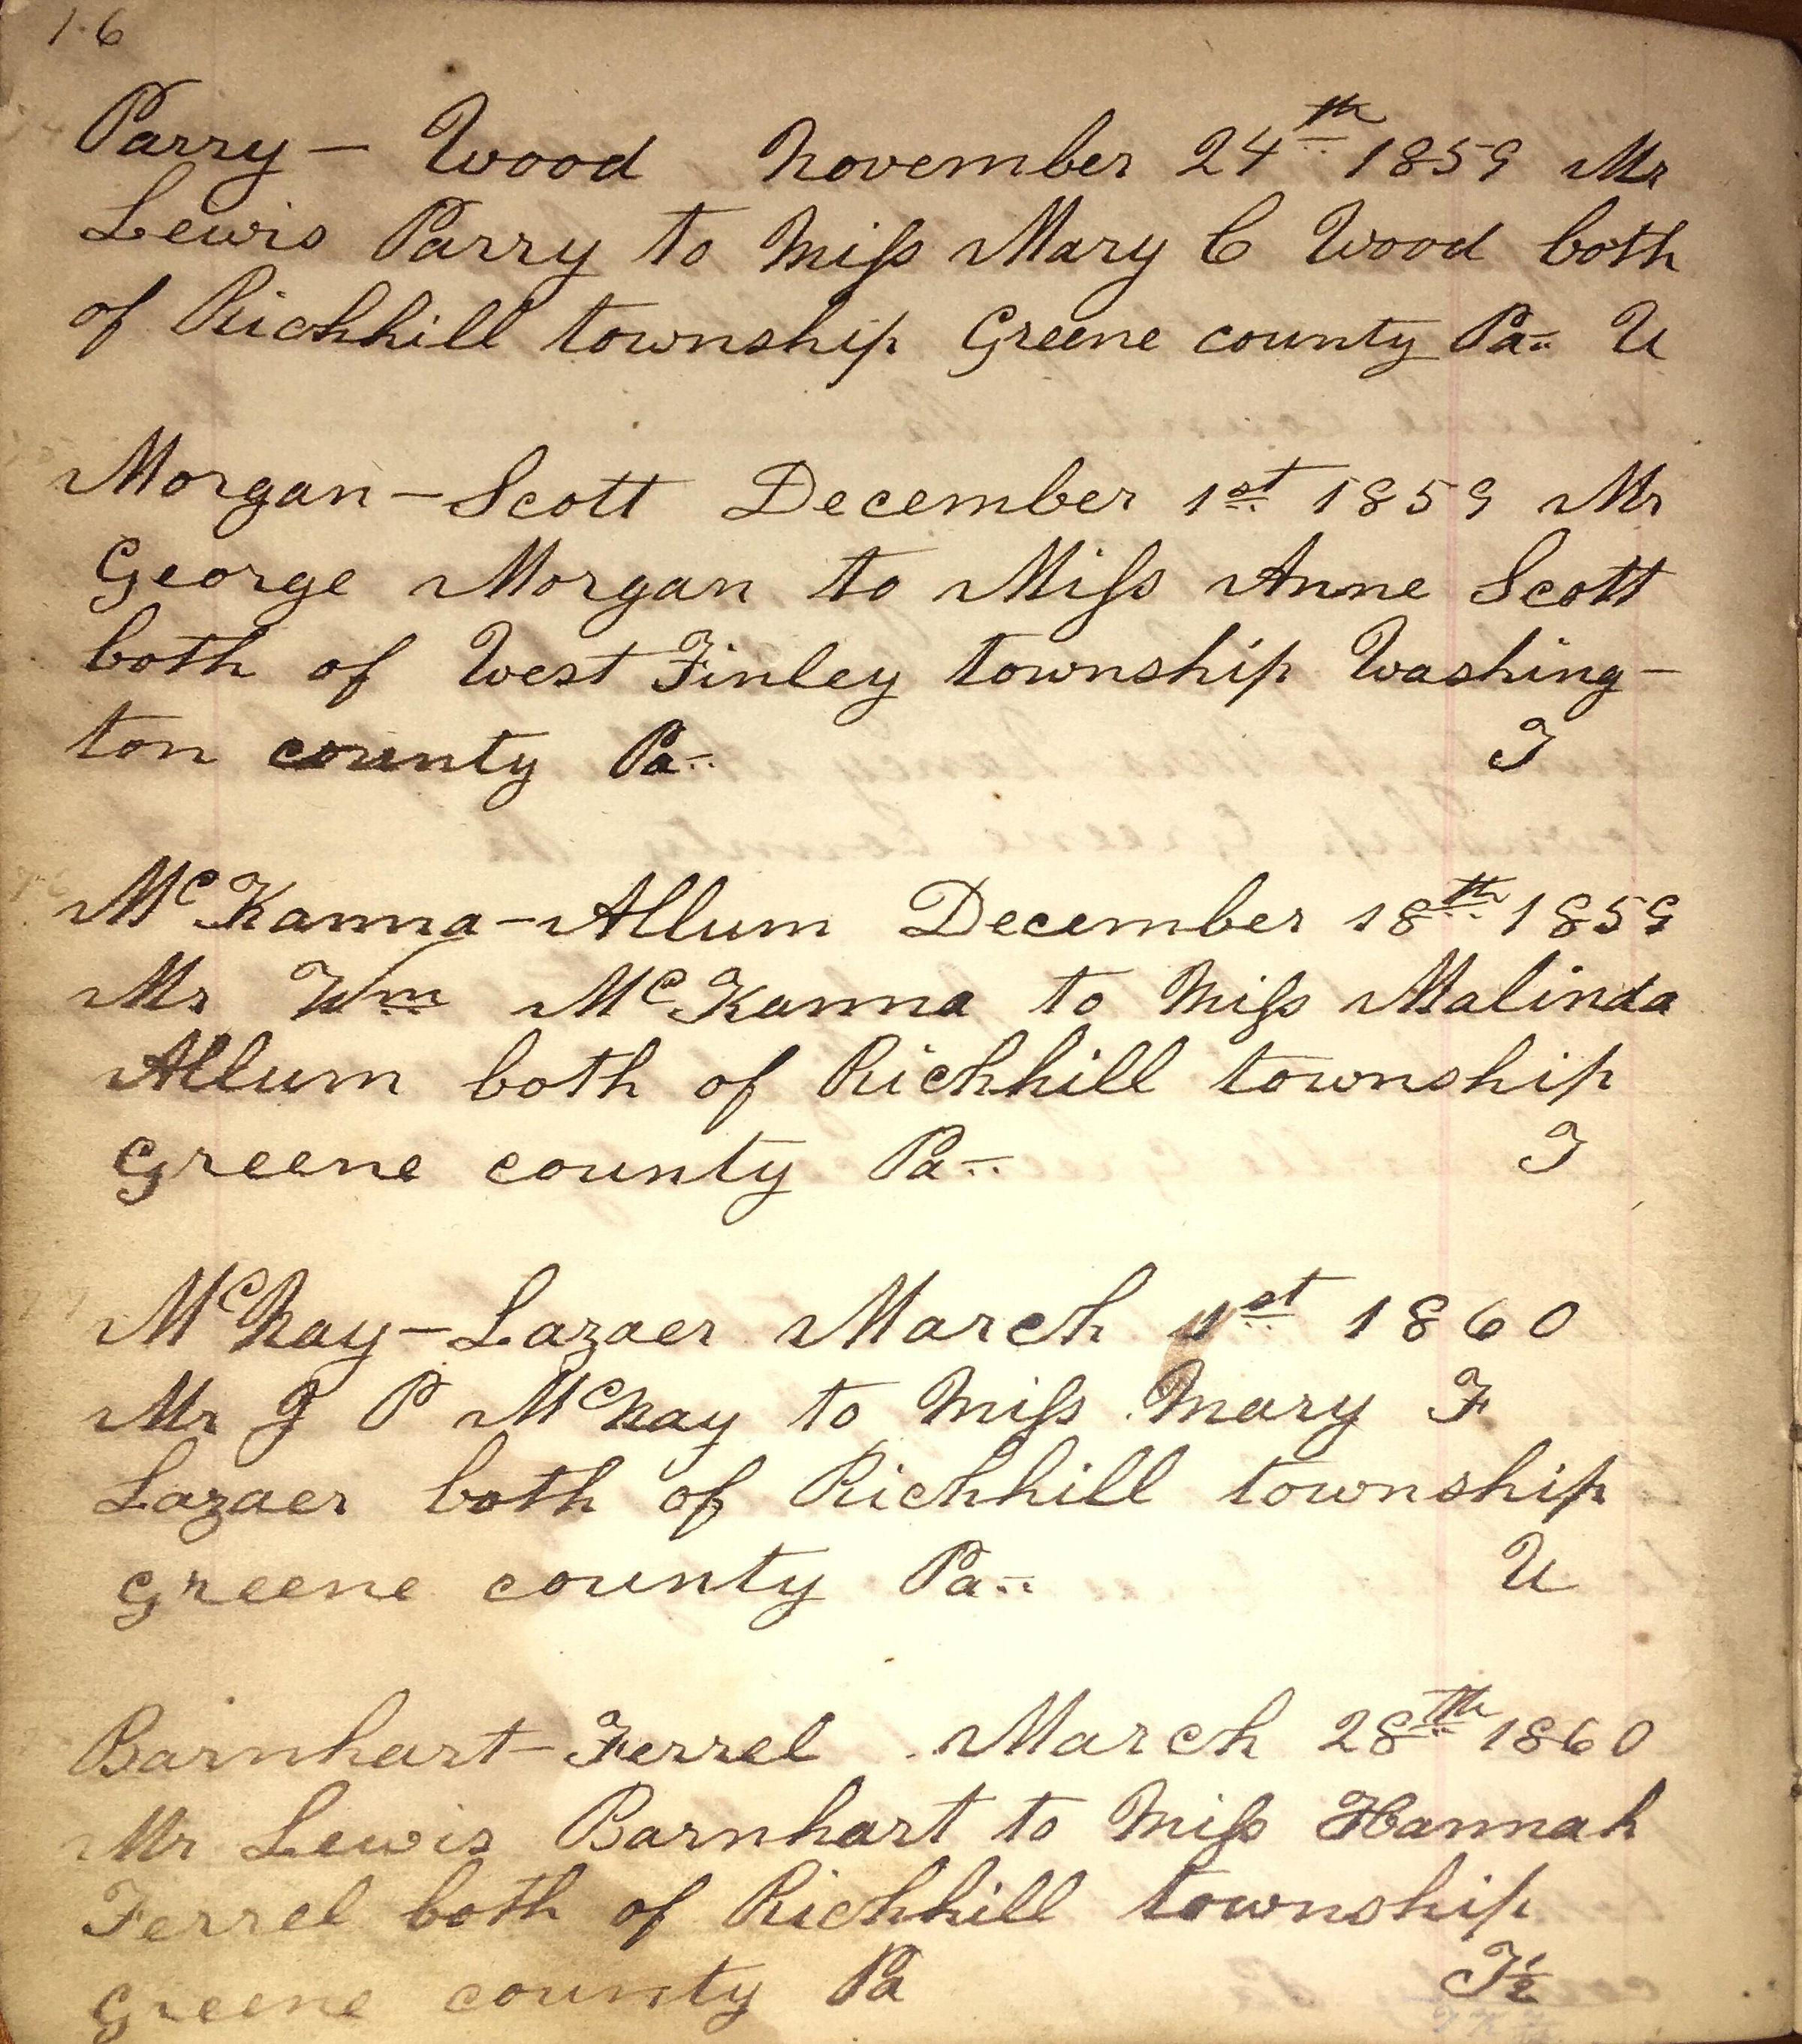 16
Parry - Wood November 24th 1859 Mr
Lewis Parry to Miss Mary C Wood both
of Richhill township Greene county Pa U
Morgan - Scott December 1st 1859 Mr
George Morgan to Miss Anne Scott
both of West Finley township Washing-
ton county Pa
McKanna - Allum December 18th 1859
Mr Wm McKanna to Miss Malinda
Allum both of Richhill township
Greene county Pa
McNay - Lazaer March 1st 1860
Mr J P McNay to Miss Mary F
Lazaer both of Richhill township
Greene county Pa U
Barnhart - Ferrel March 28th 1860
Mr Lewis Barnhart to Miss Hannah
Ferrel both of Richhill township
Greene county Pa